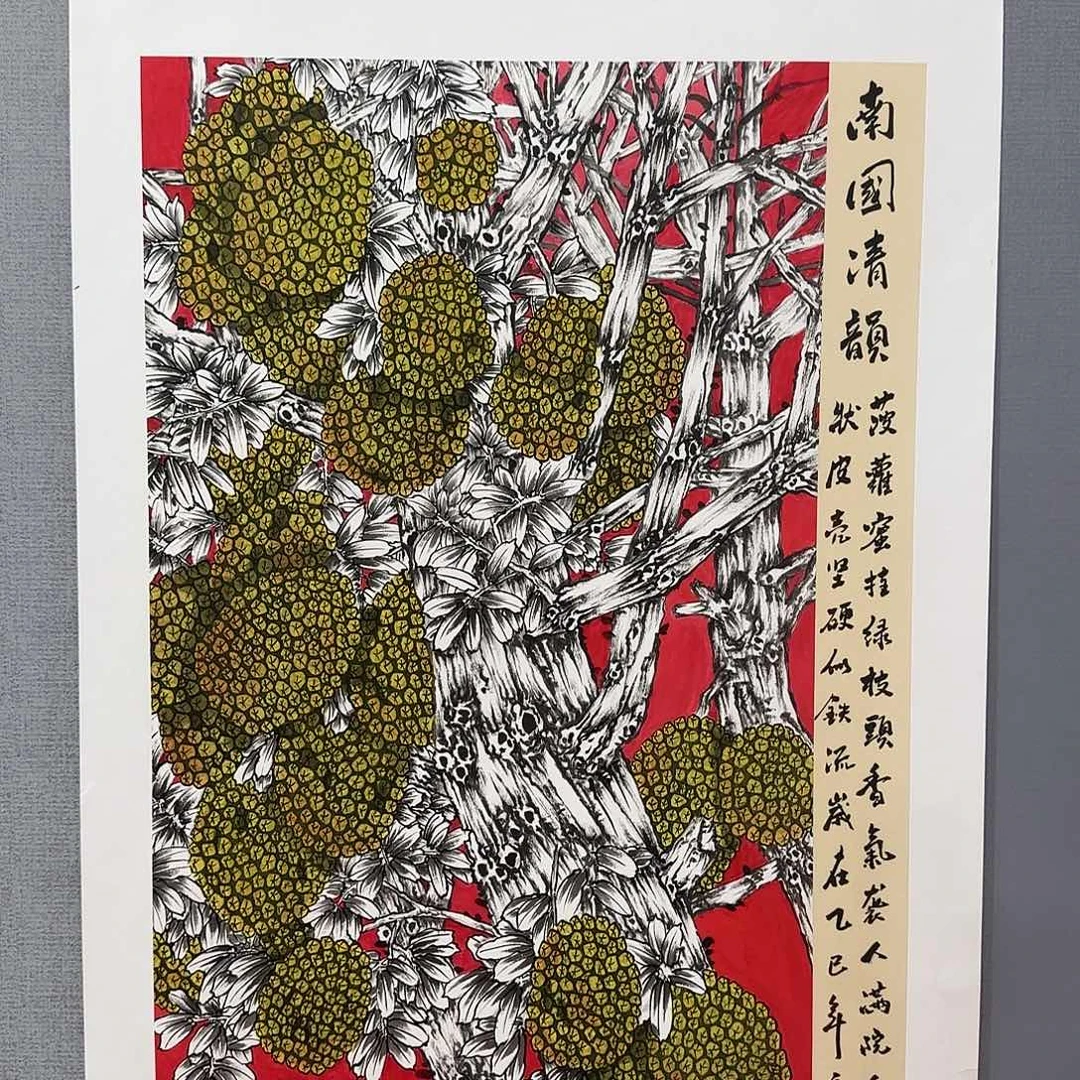 南國清韻
菠蘿蜜挂绿枝頭香氣袭人滿院
状皮壳坚硬似鉄流歲在乙巳年